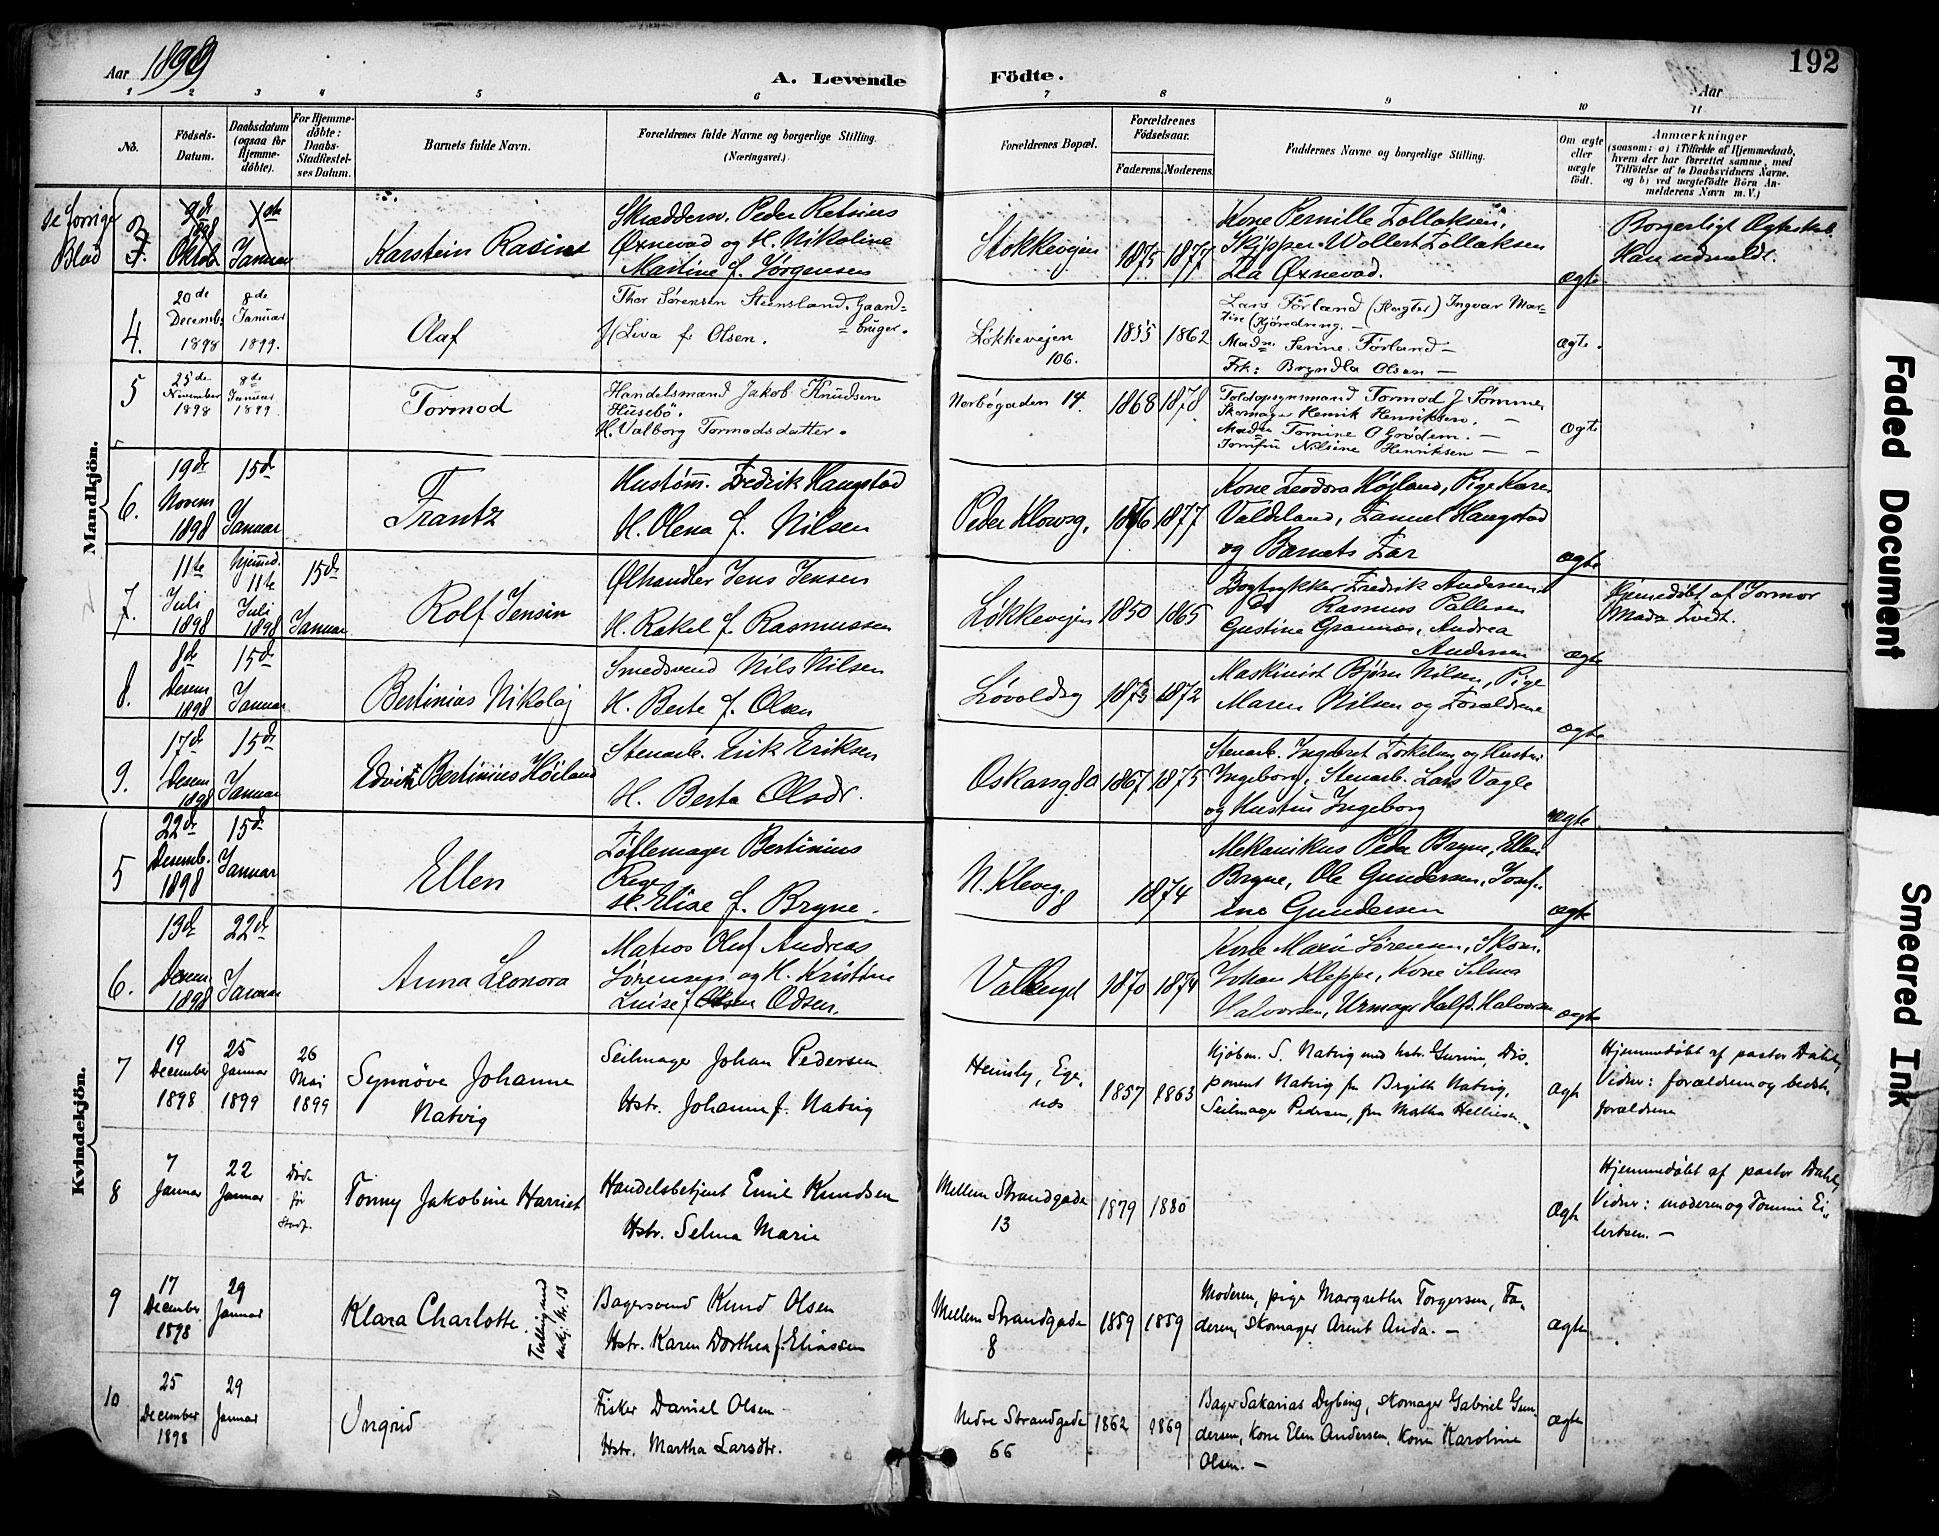 Aar 1899
A. Levende Födte.
192
Aar
1 2 3 4 5 6 7 8 9 10 11
No.
Födsels-
Datum.
Daabsdatum
(ogsaa for
Hjemme-
döbte).
For Hjemme-
döbte:
Daabs-
Stadfæstel-
ses Datum.
Barnets fulde Navn.
Forældrenes fulde Navne og borgerlige Stilling.
(Næringsvei.)
Forældrenes Bopæl.
Forældrenes
Födselsaar.
Faderens. Moderens.
Faddernes Navne og borgerlige Stilling.
Om ægte
eller
uægte
født.
Anmærkninger
(saasom: a) i Tilfælde af Hjemmedaab,
hvem der har forrettet samme, med
Tilföielse af to Daabsvidners Navne,
og b) ved uægtefödte Börn An-
melderens Navn m. V.)
Mandkjön.
se forrige
Blad
3.
1898
Oktob
Januar
Karstein Rasine
Skrædderm. Peder Retnius
Øxnevad og H. Nikoline
Martine f. Jørgensen
Stokkevejen
1875
1877
Kone Pernille Tollaksen,
Skipper Wollert Tollaksen
Øxnevad.
ægte
Borgerligt Ægteskab.
Han udmeldt.
4.
20de
Decemb.
1898
8de
Januar
1899.
Olaf
Thor Sørensen Steensland. Gaard-
bruger.
H/ Liva f. Olsen.
Løkkevejen
106.
1855
1862
Lars Förland Ingvar Mar-
Madm. Serine Förland —
Frk: Bryndla Olsen —
ægte.
5
25de
November
1898
8de
Januar
1899.
Tormod
Handelsmand Jakob Knudsen
Husebö.
H. Valborg Tormodsdatter.
Nerbögaden 14.
1868
1878
Toldopsynsmand Tormod J. Tömmer
Skomager Henrik Henriksen. —
Madm Tomine O Grödem. —
Jomfru Nilsine Henriksen — —
ægte
6.
19de
Novem
1898
15de
Januar
Frantz
Hustøm. Fredrik Haugstad
H. Olena f. Nilsen
Peder Klowsg.
1876
1877
Kone Teodora Højland, Pige Karen
Valdeland, Samuel Haugstad
og Barnets Far
ægte
7.
11te
Juli
1898
Hjemmed.
11te
Juli
1898
15de
Januar
Rolf Jensin
Ølhandler Jens Jensen
H. Rakel f. Rasmussen
Løkkevejen
1850
1865
Bogtrykker Fredrik Andersen
Do Rasmus Pallesen
Gustine Grannes, Andrea
Andersen
ægte
Hjemedøbt af Jormor
Mada Tvedt.
8.
8de
Desem
1898
15de
Januar
Bertinius Nikolaj
Smedsvend Nils Nilsen
H. Berte f. Olsen
Løvoldsg
1873
1872
Maskinist Bjørn Nilsen, Pige
Maren Nilsen og Forældrene
ægte
9.
17de
Desem
1898
15de
Januar
Edvin Bertinius Höiland
Stenarb. Erik Eriksen
H. Berta Olsdr.
Oskarsg. 80
1867
1875
Stenarb. Ingebret Torkelsen og Hustru
Ingeborg, Stenarb. Lars Vagle
og Hustru Ingeborg
ægte
Kvindekjön.
5
22de
Desemb.
1898
15de
Januar
Ellen
Tøflemager Bertinius
Rege
H. Elise f. Bryne.
N. Kleivg.
8
1874
Mekanikus Peder Bryne, Ellen
Bryne, Ole Gundersen, Josef-
ine Gundersen
ægte
6.
13de
Desem
1898
22de
Januar
Anna Leonora
Matros Oluf Andreas
Sørensen og H. Kristine
Luise f. Odsen.
Valbergt
1870
1874
Kone Marie Sørensen, Skom.
Johan Kleppe, Kone Selma
Halvorsen, Urmager Halfd. Halvorsen
ægte
7
19
December
1898
25
Januar
1899
26
Mai
1899
Synnöve Johanne
Natvig
Seilmager Johan Pedersen
Hstr. Johanne f. Natvig
Heimly, Ege-
nes
1857
1863
Kjöbm. S. Natvig med hstr. Gurine, Dis-
ponent Natvig, fru Birgitte Natvig,
Seilmager Pedersen, fru Martha Helliesen.
ægte
Hjemmedöbt af pastor Dahl,
Vidner: forældrene og bedste-
forældrene
8
7
Januar
22
Januar
Døde
før
Stadf.
Tonny Jakobine Harriet
Handelsbetjent Emil Knudsen
Hstr. Selma Marie
Mellem Strandgade
13
1879
1880
ægte
Hjemmedöbt af pastor Dahl,
Vidner: moderen og Tomine Ei-
lertsen. —
9
17
December
1898
29
Januar
Klara Charlotte
Tvilling med
mkj. Nr. 13
Bagersvend Knud Olsen
Hstr. Karen Dorthea f. Eliassen
Mellem Strandgade
8
1859
1859
Moderen, pige Margrethe Torgersen, Fa-
deren, skomager Arent Anda. —
ægte
10
25
December
1898
29
Januar
Ingrid
Fisker Daniel Olsen
Hstr. Martha Larsdtr.
Nedre Strandgade
66
1862
1869
Bager Sakarias Dybing, skomager Gabriel Gun-
dersen, Kone Elen Andersen, Kone Karoline
Olsen. —
ægte
Faded Document
Smeared Ink